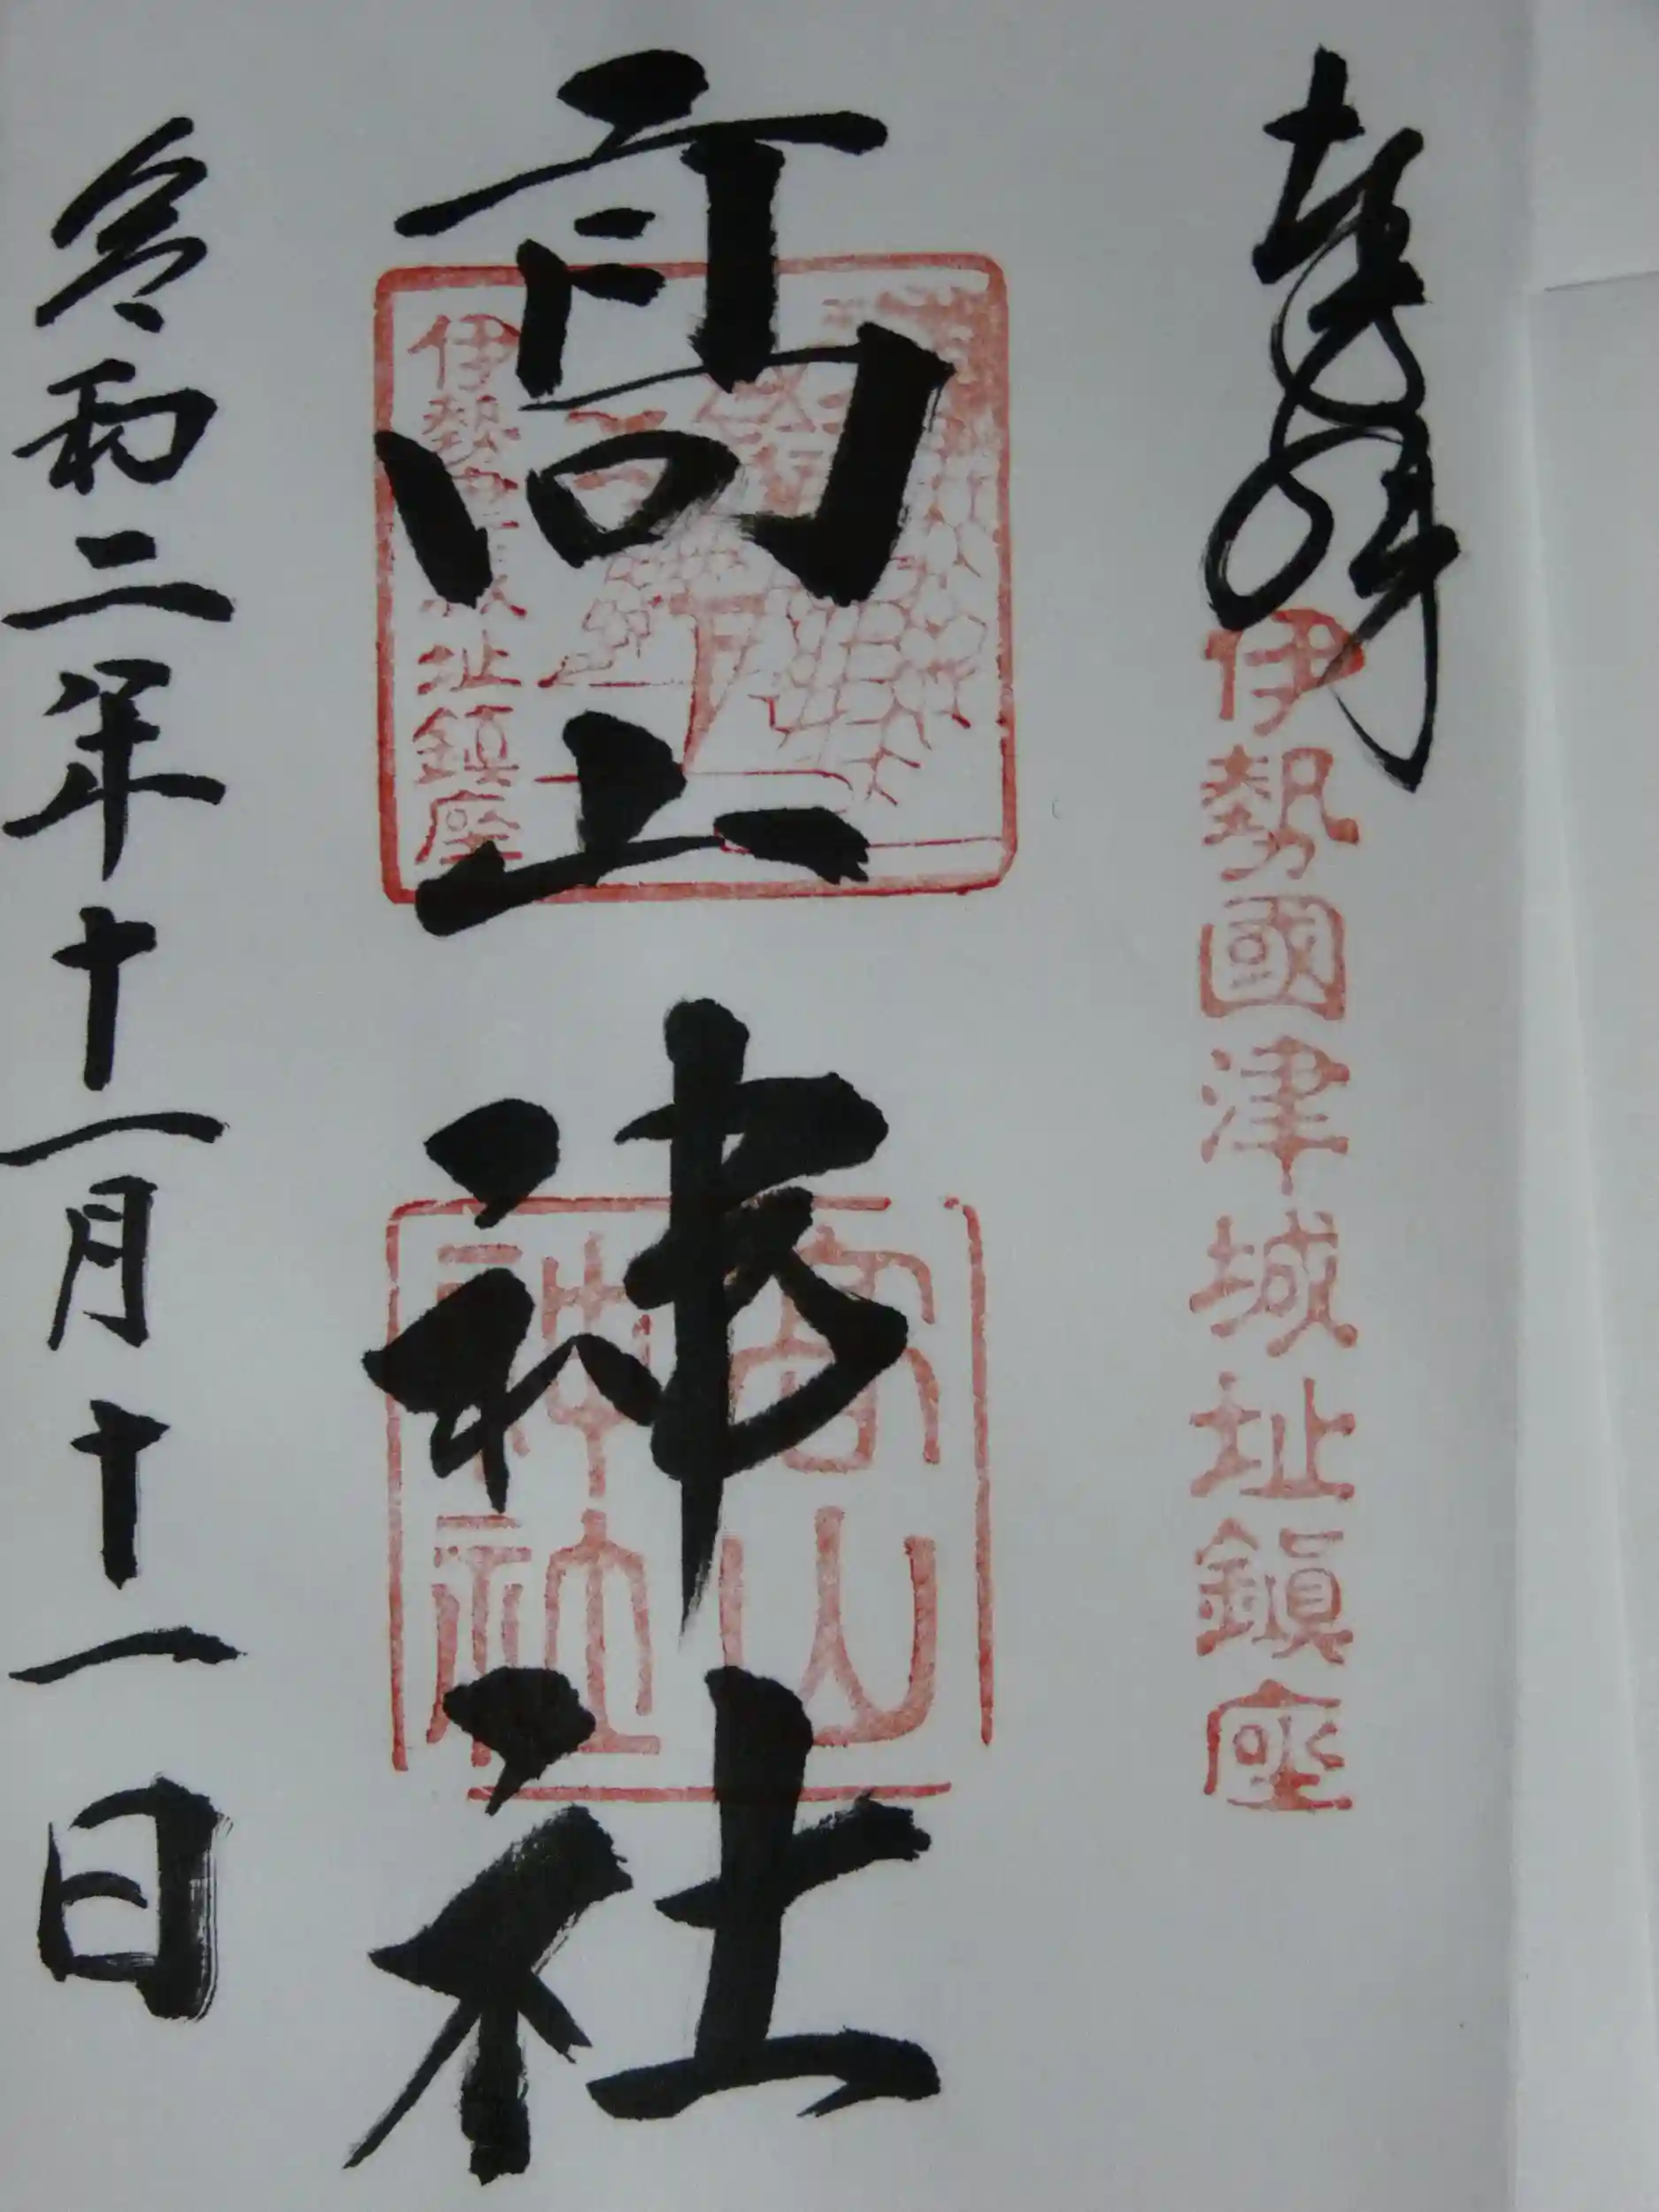 奉拝
伊勢國津城址鎮座
高山神社
伊勢津城址鎮座
高山
神社
令和二年十一月十一日